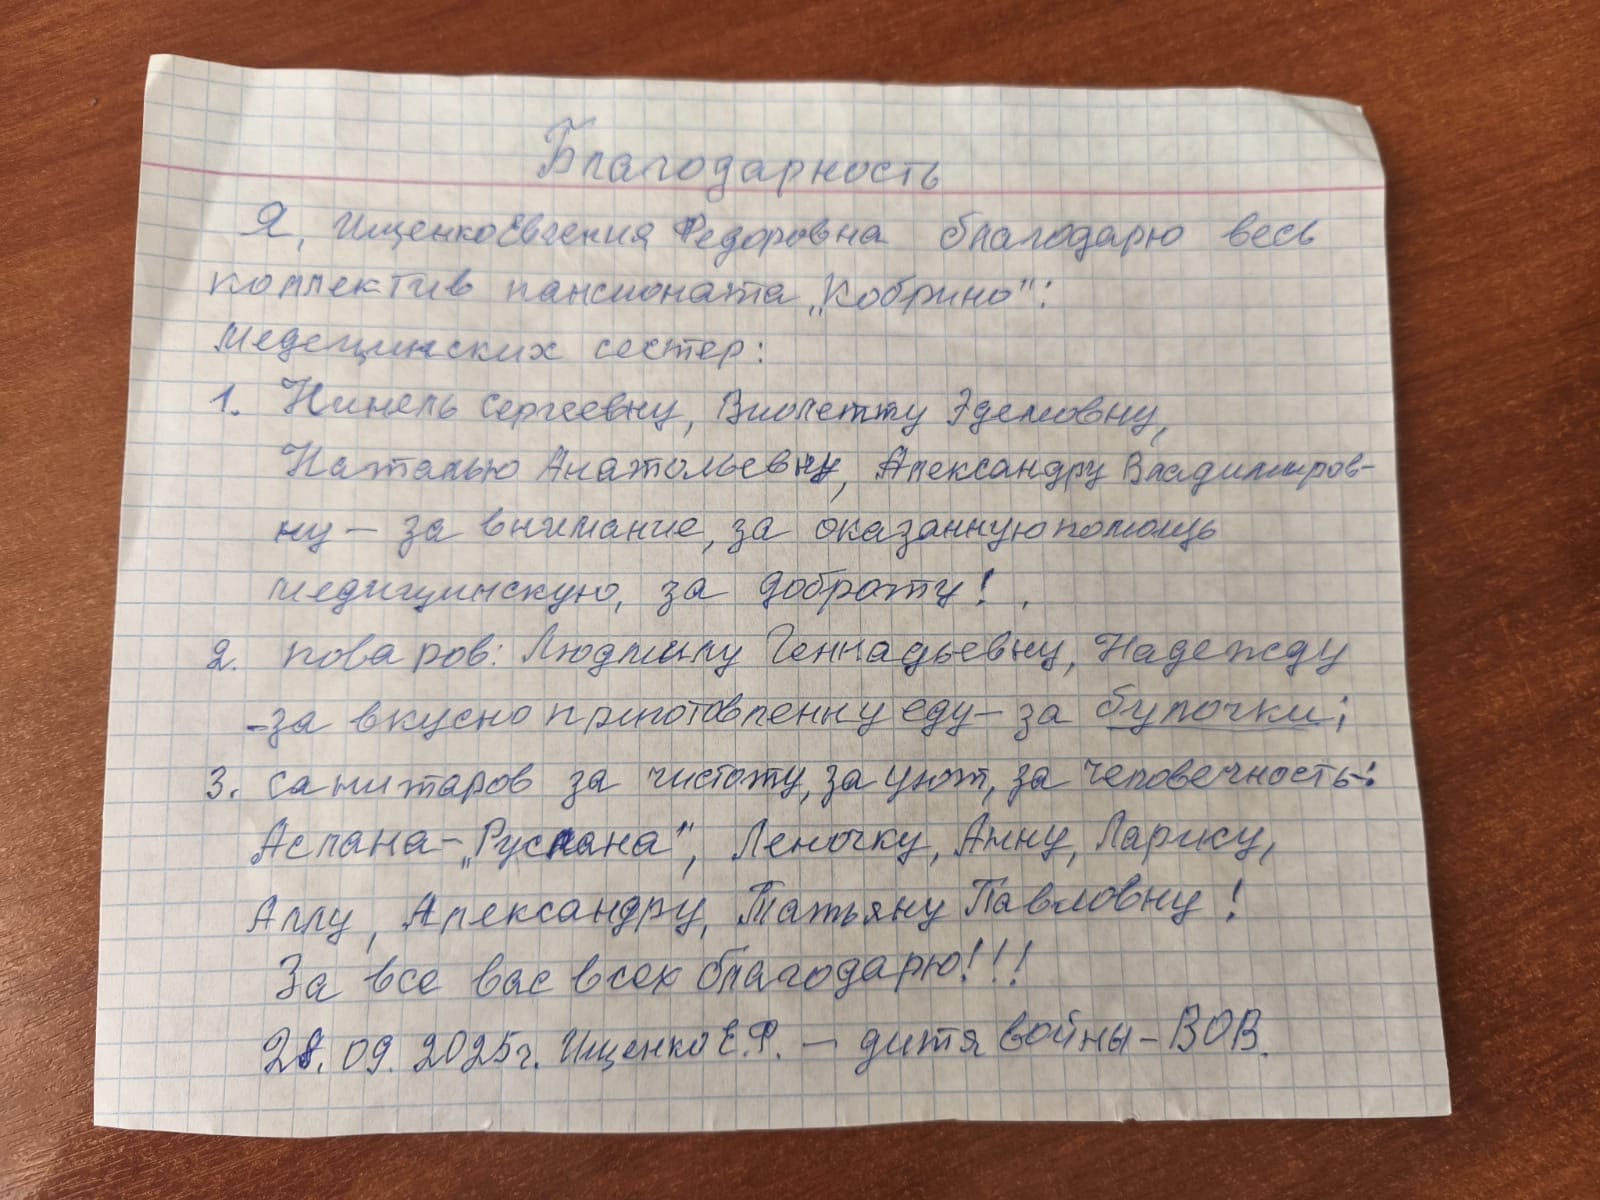 Благодарность
Я, Ищенко Евгения Федоровна благодарю весь
коллектив пансионата „Кобрино":
медецинских сестер:
1. Нинель Сергеевну, Виолетту Эдемовну,
Наталью Анатольевну, Александру Владимиров-
ну – за внимание, за оказанную помощь
медицинскую, за доброту!
2. поваров: Людмилу Геннадьевну, Надежду
-за вкусно приготовленну еду – за булочки;
3. санитаров за чистоту, за уют, за человечность:
Аслана – „Руслана", Леночку, Анну, Ларису,
Аллу, Александру, Татьяну Павловну!
За все вас всех благодарю!!!
28.09.2025г. Ищенко Е.Ф. – дитя войны – ВОВ.